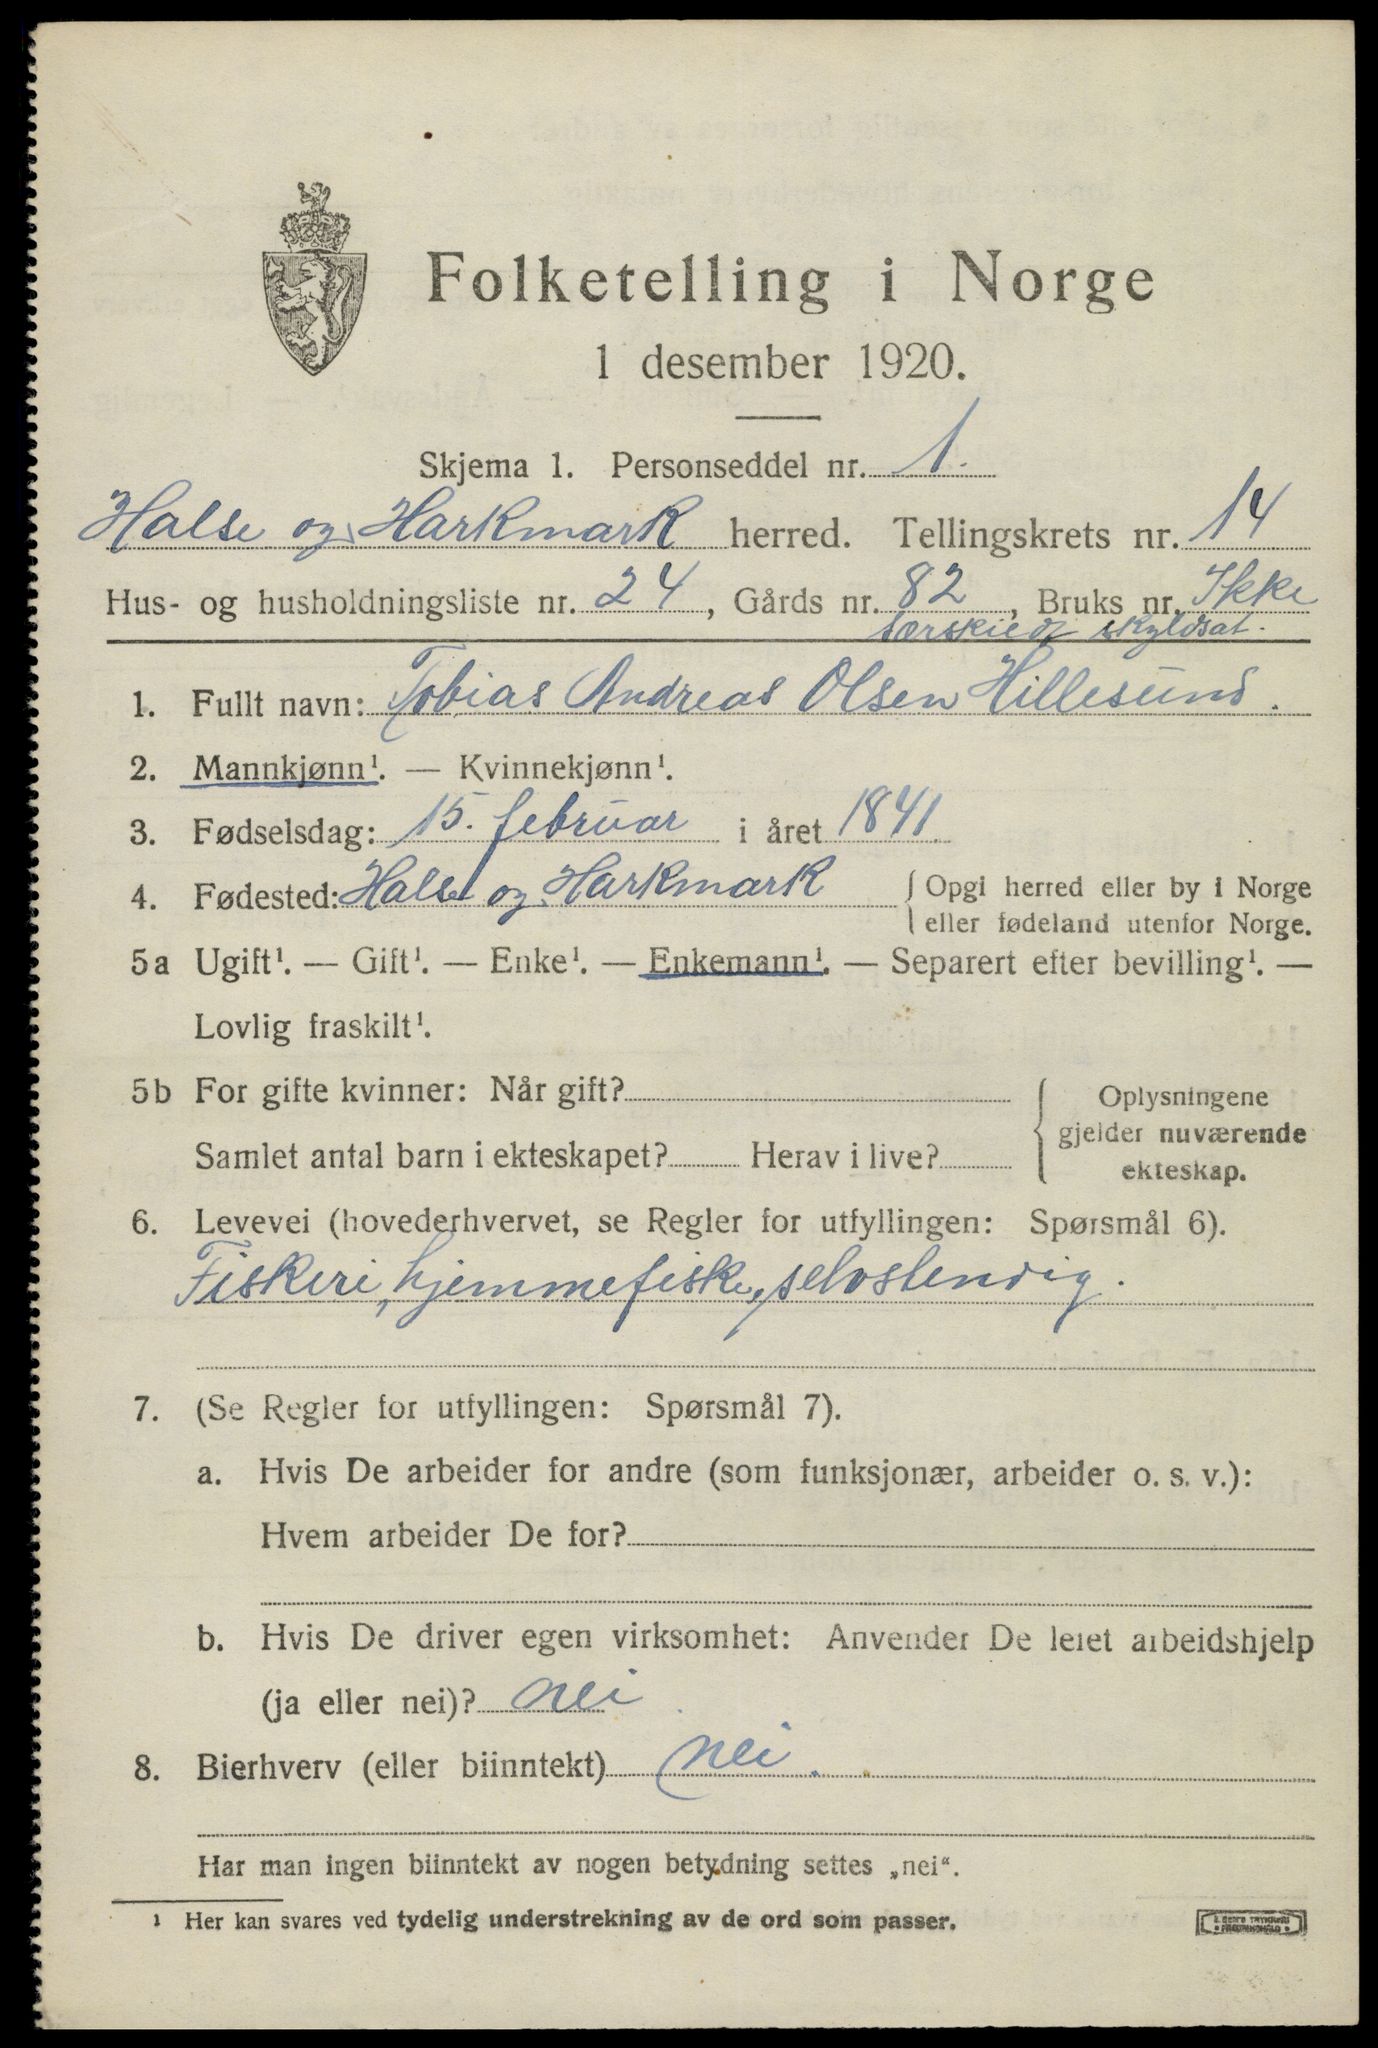 Folketelling i Norge
1 desember 1920.
Skjema 1. Personseddel nr. 1.
Halse og Harkmark herred. Tellingskrets nr. 14
Hus- og husholdningsliste nr. 24, Gårds nr. 82, Bruks nr. Ikke
særskied skyldsat.
1. Fullt navn: Tobias Andreas Olsen Hillesund.
2. Mannkjønn¹. — Kvinnekjønn¹.
3. Fødselsdag: 15. februar i året 1841
4. Fødested: Halse og Harkmark { Opgi herred eller by i Norge
eller fødeland utenfor Norge.
5a Ugift¹. — Gift¹. — Enke¹. — Enkemann¹. — Separert efter bevilling¹. —
Lovlig fraskilt¹.
5b For gifte kvinner: Når gift?
Samlet antal barn i ekteskapet? Herav i live?
Oplysningene
gjelder nuværende
ekteskap.
6. Levevei (hovederhvervet, se Regler for utfyllingen: Spørsmål 6).
Fiskeri, hjemmefiske, selvstendig.
7. (Se Regler for utfyllingen: Spørsmål 7).
a. Hvis De arbeider for andre (som funksjonær, arbeider o. s. v.):
Hvem arbeider De for?
b. Hvis De driver egen virksomhet: Anvender De leiet arbeidshjelp
(ja eller nei)? nei
8. Bierhverv (eller biinntekt) nei.
Har man ingen biinntekt av nogen betydning settes „nei“.
¹ Her kan svares ved tydelig understrekning av de ord som passer.